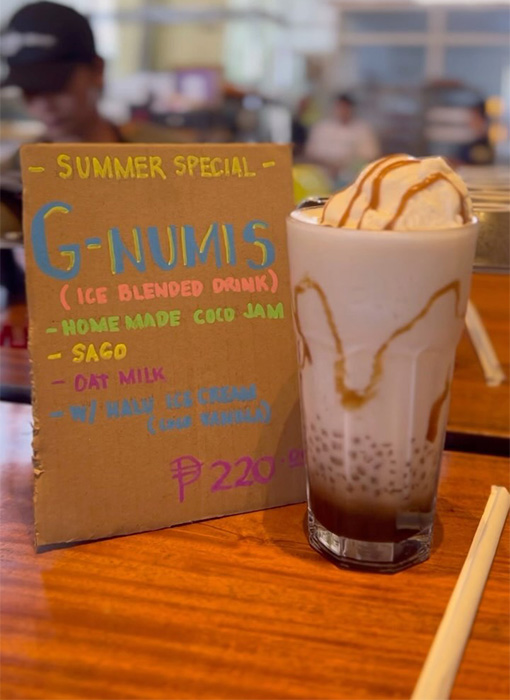 - SUMMER SPECIAL -
G-NUMIS
( ICE BLENDED DRINK)
- HOME MADE COCO JAM
- SAGO
- OAT MILK
- W/ ICE CREAM
₱220.